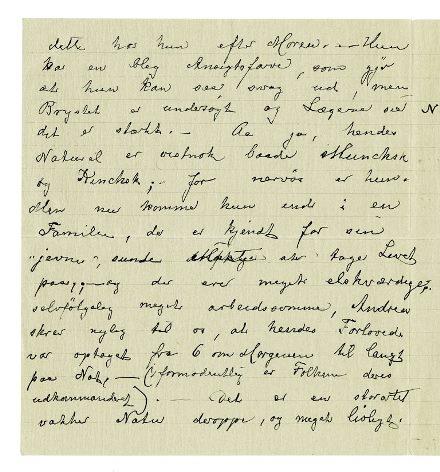 dette har hun efter Moren. — Hun
har en bleg Ansigtsfarve, som gjør
at hun kan see svag ud, men
Brystet er undersøgt og Lægerne sier N
det er stærkt. — Aa ja, hendes
Naturel er vistnok baade Munchsk
og Kincksk; — for nervøs er hun.
Men nu komme hun ind i en
Familie, der er kjendt for sin
"jevne", sunde at tage Livet
paa, og der ere meget elskværdige,
selvfølgelig meget arbeidsomme, Andreas
skrev nylig til os, at hendes Forlovede
var optaget fra 6 om Morgenen til langt
paa Nat, — (formodentlig er Folkene deres
udkommanderet). — Det er en storartet
vakker Natur deroppe, og meget livligt.